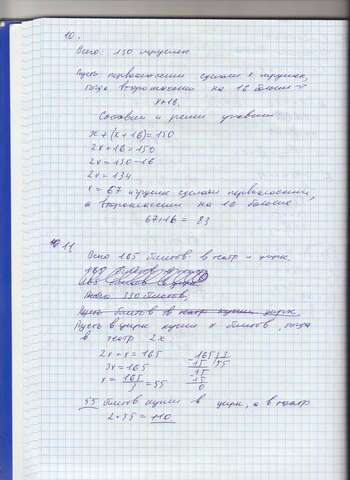 10.
Всего: 150 игрушек
Пусть первоклассники сделали x игрушек,
тогда второклассники на 16 больше
x+16.
Составим и решим уравнение
x + (x + 16) = 150
2x + 16 = 150
2x = 150 - 16
2x = 134
x = 67 игрушек сделали первоклассники,
а второклассники на 16 больше
67+16 = 83
11
Всего 165 билетов в театр и цирк.
Всего 330 билетов,
Пусть в цирк купили x билетов, тогда
в театр 2x
2x + x = 165
3x = 165
x = 165/3 = 55
165 3
15 55
15
15
0
55 билетов купили в цирк, а в театр
2 * 55 = 110